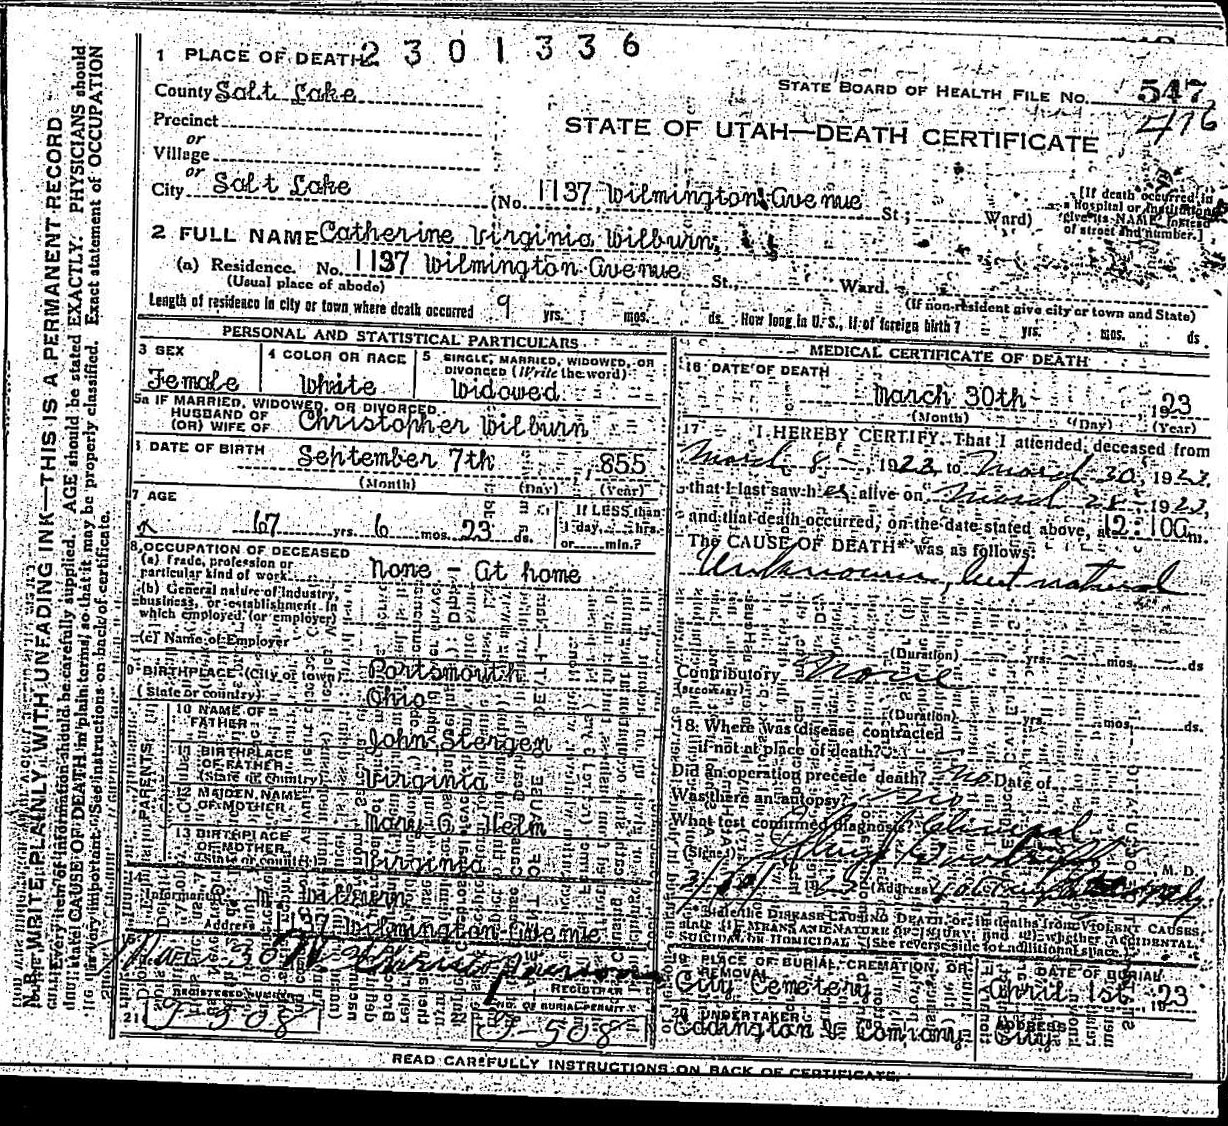 1 PLACE OF DEATH 2 3 0 1 3 3 6
County Salt Lake
STATE BOARD OF HEALTH FILE NO. 547
476
Precinct
or
Village
STATE OF UTAH—DEATH CERTIFICATE
or
City Salt Lake (No. 1137 Wilmington Avenue St.; Ward)
[If death occurred in
a Hospital or Institution
give its NAME instead
of street and number.]
2 FULL NAME Catherine Virginia Wilburn.
(a) Residence. No. 1137 Wilmington Avenue St., Ward.
(Usual place of abode) (If non-resident give city or town and State)
Length of residence in city or town where death occurred 9 yrs. mos. ds. How long in U. S., if of foreign birth? yrs. mos. ds.
PERSONAL AND STATISTICAL PARTICULARS
3 SEX
Female
4 COLOR OR RACE
White
5 SINGLE, MARRIED, WIDOWED, OR
DIVORCED (Write the word)
Widowed
5a IF MARRIED, WIDOWED, OR DIVORCED
HUSBAND OF
(OR) WIFE OF Christopher Wilburn
DATE OF BIRTH September 7th 1855
(Month) (Day) (Year)
7 AGE
67 yrs. 6 mos. 23 ds.
If LESS than
1 day, hrs.
or min.?
8 OCCUPATION OF DECEASED
(a) Trade, profession or
particular kind of work None - At home
(b) General nature of industry,
business, or establishment in
which employed (or employer)
(c) Name of Employer
9 BIRTHPLACE (City or town) Portsmouth
(State or country) Ohio
PARENTS
10 NAME OF
FATHER John Stergen
11 BIRTHPLACE
OF FATHER
(State or country) Virginia
12 MAIDEN NAME
OF MOTHER Mary A. Helm
13 BIRTHPLACE
OF MOTHER
(State or country) Virginia
14
Informant M Wilburn
Address 37 Wilmington Avenue
15
Mar 30
REGISTRAR
REGISTERED NUMBER
21 J-508
OF BURIAL PERMIT
J-508
MEDICAL CERTIFICATE OF DEATH
16 DATE OF DEATH
March 30th 1923
(Month) (Day) (Year)
17 I HEREBY CERTIFY, That I attended deceased from
March 8 - 1923, to March 30, 1923,
that I last saw her alive on March 28 - 1923,
and that death occurred, on the date stated above, at 12:10 a m.
The CAUSE OF DEATH* was as follows:
Unknown, but natural
(Duration) yrs. mos. ds
Contributory None
(SECONDARY)
(Duration) yrs. mos. ds.
18 Where was disease contracted
if not at place of death?
Did an operation precede death? No Date of
Was there an autopsy? No
What test confirmed diagnosis? Clinical
(Signed) M. D.
3/30/1923 (Address)
State the DISEASE CAUSING DEATH, or, in deaths from VIOLENT CAUSES,
state (1) MEANS AND NATURE OF INJURY; and (2) whether ACCIDENTAL,
SUICIDAL or HOMICIDAL. (See reverse side for additional space.)
19 PLACE OF BURIAL, CREMATION, OR
REMOVAL
City Cemetery
DATE OF BURIAL
April 1st 1923
20 UNDERTAKER
Eddington & Company
ADDRESS
City
READ CAREFULLY INSTRUCTIONS ON BACK OF CERTIFICATE.
N. B.—WRITE PLAINLY WITH UNFADING INK—THIS IS A PERMANENT RECORD
Every item of information should be carefully supplied. AGE should be stated EXACTLY. PHYSICIANS should
state CAUSE OF DEATH in plain terms, so that it may be properly classified. Exact statement of OCCUPATION
is very important. See instructions on back of certificate.